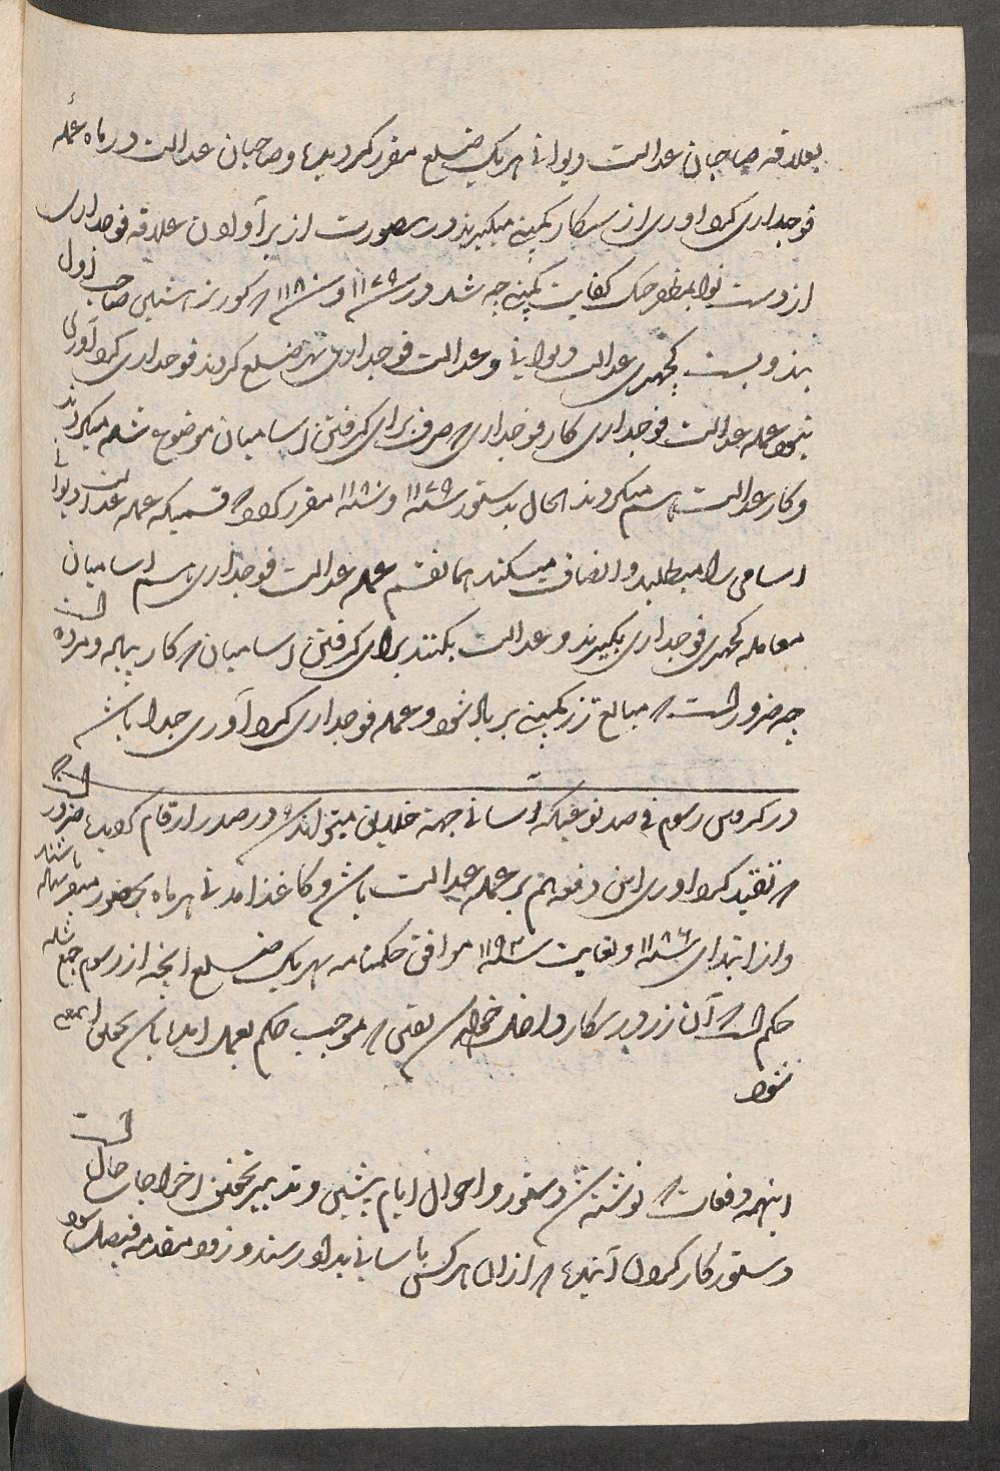 بعلاقه صاحبان عدالت دیوانی هر یک ضلع مقرر گردیده و صاحبان عدالت در ماه عمله
فوجداری گرداوری از سرکار کمپنی میگیرند درینصورت از برآوردن علاقه فوجداری
از دست نواب مظفر جنگ کفایت کمپنی چه شد در سنه ۱۱۷۹ و سنه ۱۱۸۰ که گورنر صاحب اول
بندوبست کچهری عدالت دیوانی و عدالت فوجداری هر ضلع کردند فوجداری گردآوری
نبود عمله عدالت فوجداری کار فوجداری که صرف برای گرفتن اسامیان موضوع شده میکردند
و کار عدالت هم میکردند الحال بدستور سنه ۱۱۷۹ و سنه ۱۱۸۰ مقرر شود قسمیکه عمله عدالت دیوانی
اسامی را میطلبد و انصاف میکند همانقسم عمله عدالت فوجداری هم اسامیان
معامله کچهری فوجداری بگیرند و عدالت بکنند برای گرفتن اسامیان که کار پیاده و مرده است
چه ضرور است که مبالغ زر کمپنی برباد شود و عمله فوجداری گردآوری جدا باشد
در گرفتن رسوم فی صد نوعیکه آسانی جهة خلایق میتواند شد در صدر ارقام گردیده ضرور است
که تقید گرداوری این دفعه هم بر عمله عدالت باشد و کاغذ آمدنی هر ماه بحضور میفرستاده باشند
و از ابتدای سنه ۱۱۸۶ و لغایت سنه ۱۱۹۳ موافق حکمنامه هر یک ضلع آنچه از رسوم جمع شده
حکم است که آن زر در سرکار داخل خواهد شد یقین که موجب حکم بعمل آمده باشد
شود
اینهمه دفعات که نوشته شد دستور و احوال ایام پیشین و تدبیر تخفیف اخراجات حال است
دستور کار کردن آینده که ازان هر کس باسانی بداد رسند و زود مقدمه فیصل شود